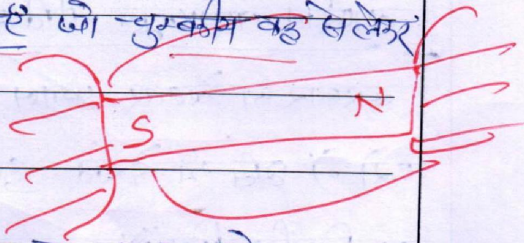 है जो चुम्बकीय वह से लेकर
S N